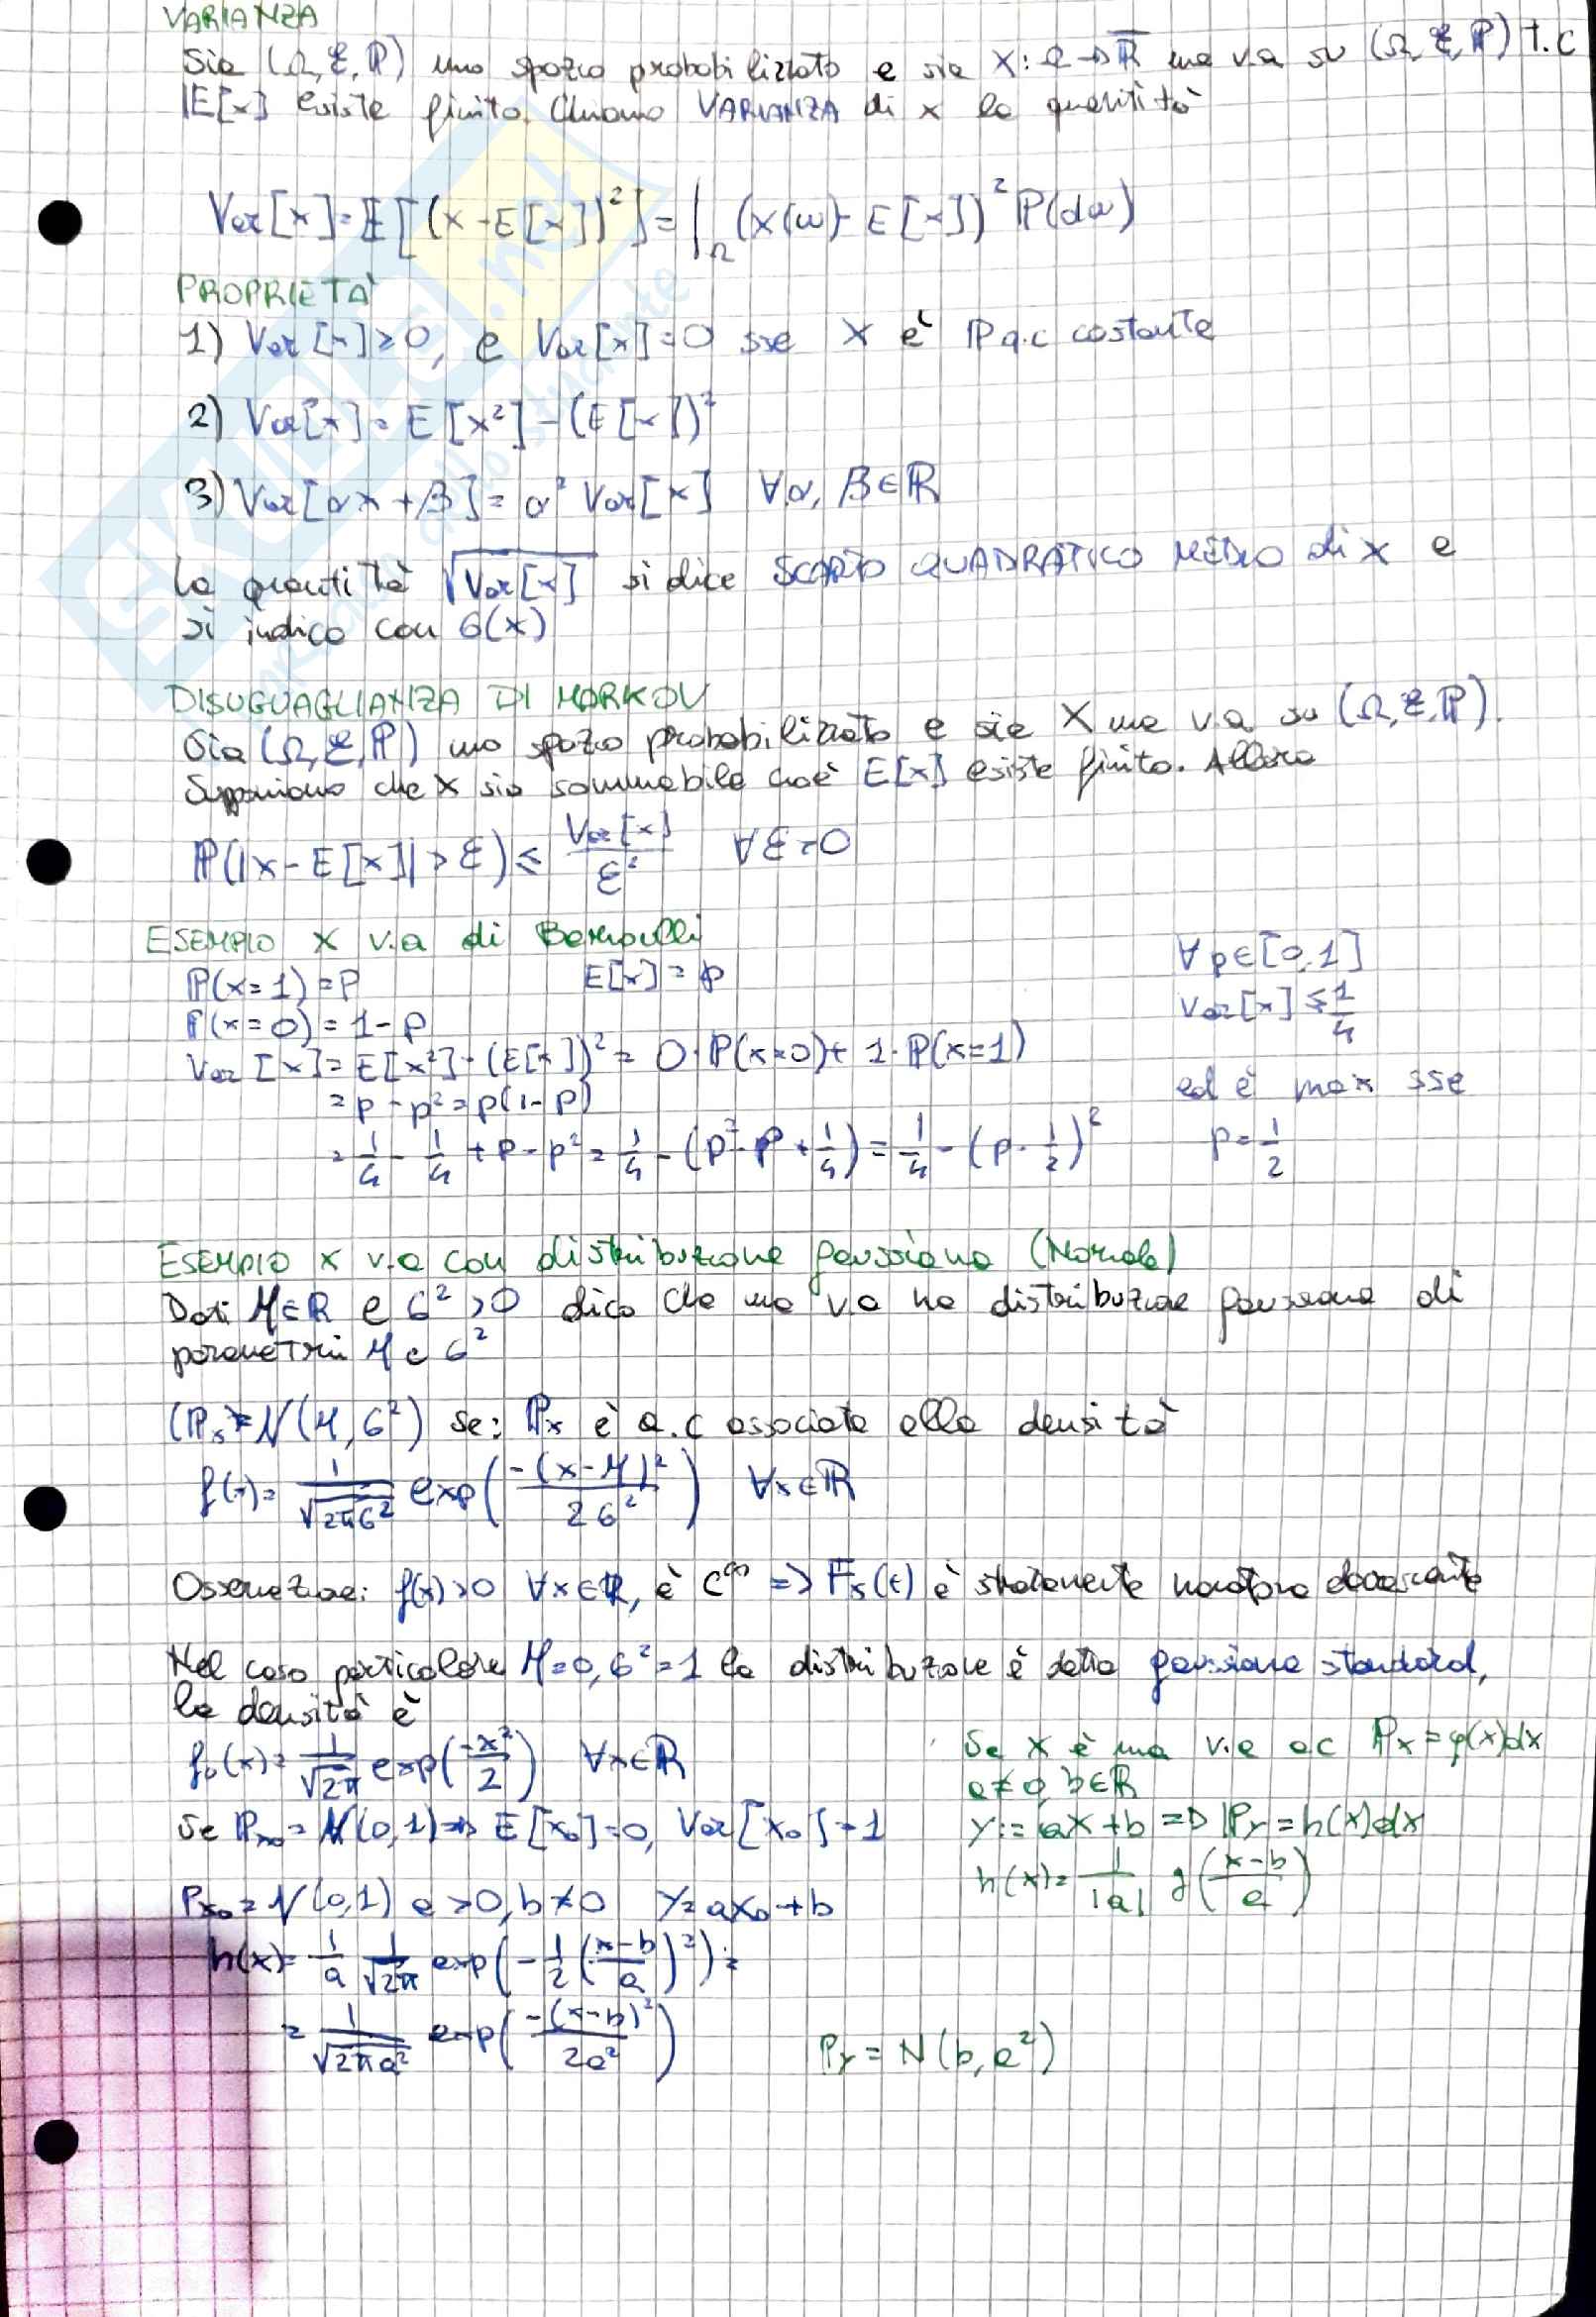 VARIANZA
Sia (Ω, ℰ, ℙ) uno spazio probabilizzato e sia X: Ω → ℝ̅ una v.a su (Ω, ℰ, ℙ) t.c
𝔼[x] esiste finito. Chiamo VARIANZA di x la quantità
Var[x] = 𝔼[(x - E[x])²] = ∫_Ω (x(ω) - E[x])² ℙ(dω)
PROPRIETÀ
1) Var[x] ≥ 0, e Var[x] = 0 sse X è ℙ q.c costante
2) Var[x] = E[x²] - (E[x])²
3) Var[αx + β] = α² Var[x] ∀α, β ∈ ℝ
la quantità √Var[x] si dice SCARTO QUADRATICO MEDIO di x e
si indica con σ(x)
DISUGUAGLIANZA DI MARKOV
Sia (Ω, ℰ, ℙ) uno spazio probabilizzato e sia X una v.a su (Ω, ℰ, ℙ).
Supponiamo che X sia sommabile cioè E[x] esiste finito. Allora
ℙ(|x - E[x]| > ε) ≤ Var[x]/ε² ∀ε>0
ESEMPIO X v.a di Bernoulli
ℙ(x=1) = P E[x] = p ∀p∈[0,1]
ℙ(x=0) = 1-p Var[x] ≤ 1/4
Var[x] = E[x²] - (E[x])² = 0·ℙ(x=0) + 1·ℙ(x=1)
= p - p² = p(1-p) ed è max sse
= 1/4 - 1/4 + p - p² = 1/4 - (p² - p + 1/4) = 1/4 - (p - 1/2)² p = 1/2
ESEMPIO X v.a con distribuzione gaussiana (Normale)
Dati μ∈ℝ e σ²>0 dico che una v.a ha distribuzione gaussiana di
parametri μ e σ²
(ℙx = N(μ, σ²) se: ℙx è a.c associata alla densità
f(x) = 1/√2πσ² exp(-(x-μ)²/2σ²) ∀x∈ℝ
Osservazione: f(x)>0 ∀x∈ℝ, è C^∞ => Fx(t) è strettamente monotona
Nel caso particolare μ=0, σ²=1 la distribuzione è detta gaussiana standard,
la densità è
f₀(x) = 1/√2π exp(-x²/2) ∀x∈ℝ
Se ℙx₀ = N(0,1) => E[x₀]=0, Var[x₀]=1
Se X è una v.a ac ℙx = g(x)dx
a≠0, b∈ℝ
Y := aX+b => ℙY = h(x)dx
h(x) = 1/|a| g((x-b)/a)
Px₀ = N(0,1) a>0, b≠0 Y = ax₀+b
h(x) = 1/a 1/√2π exp(-1/2 ((x-b)/a)²) =
= 1/√2πa² exp(-(x-b)²/2a²) PY = N(b, a²)